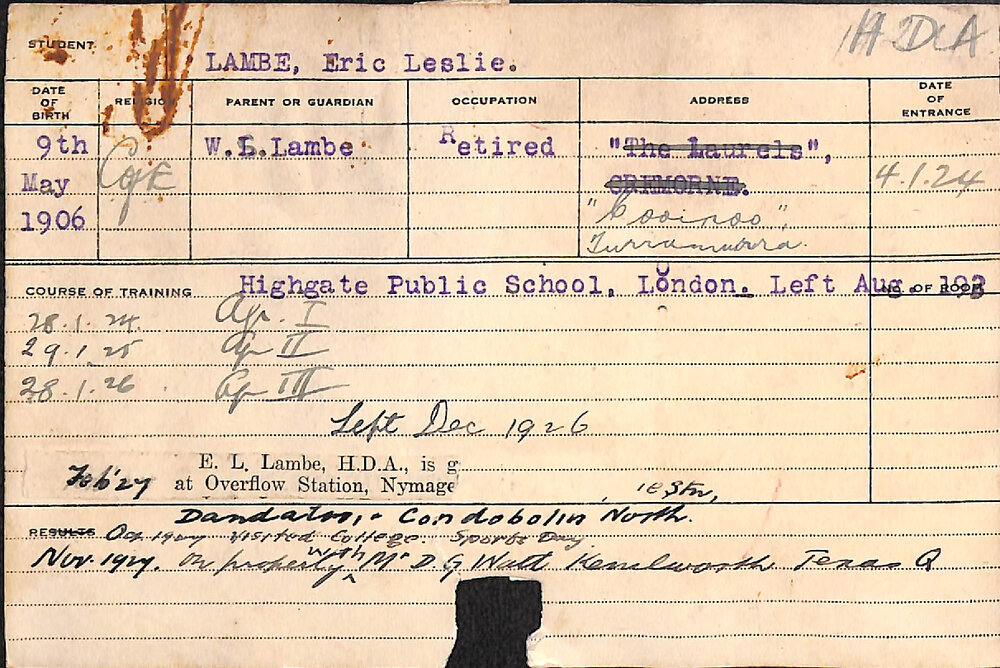 H D A
STUDENT
LAMBE, Eric Leslie.
DATE OF BIRTH RELIGION PARENT OR GUARDIAN OCCUPATION ADDRESS DATE OF ENTRANCE
9th May 1906 CofE W.L.Lambe Retired "The Laurels", CREMORNE. 4.1.24
Turramurra.
COURSE OF TRAINING Highgate Public School, London. Left Aug. NO. OF ROOM
28.1.24. Ag. I
29.1.25 Ag II
28.1.26 Ag III
Left Dec 1926
E. L. Lambe, H.D.A., is g
Feb '27 at Overflow Station, Nymage
Condobolin North.
RESULTS Oct 1927 Visited College. Sports Day
Nov. 1927. On property with Mr D. G Watt Kenilworth Texas Q